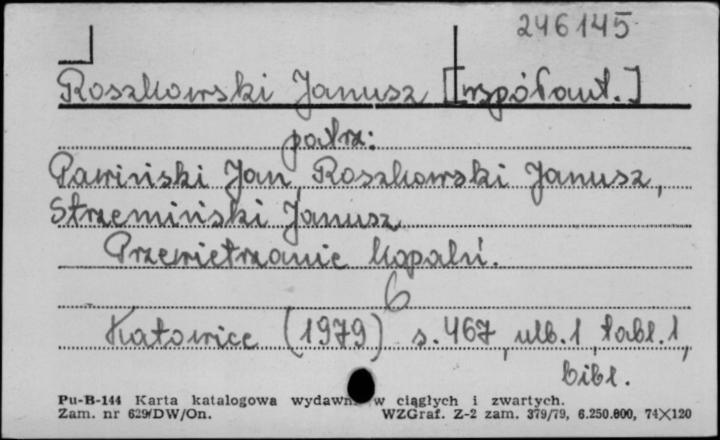 246145
Roszkowski Janusz [współaut.]
patrz:
Pawiński Jan, Roszkowski Janusz,
Strzemiński Janusz
Przewietrzanie kopalń.
6
Katowice (1979) s. 467, ulb. 1, tabl. 1,
bibl.
Pu-B-144 Karta katalogowa wydawn. w ciągłych i zwartych.
Zam. nr 629/DW/On. WZGraf. Z-2 zam. 379/79, 6.250.000, 74×120